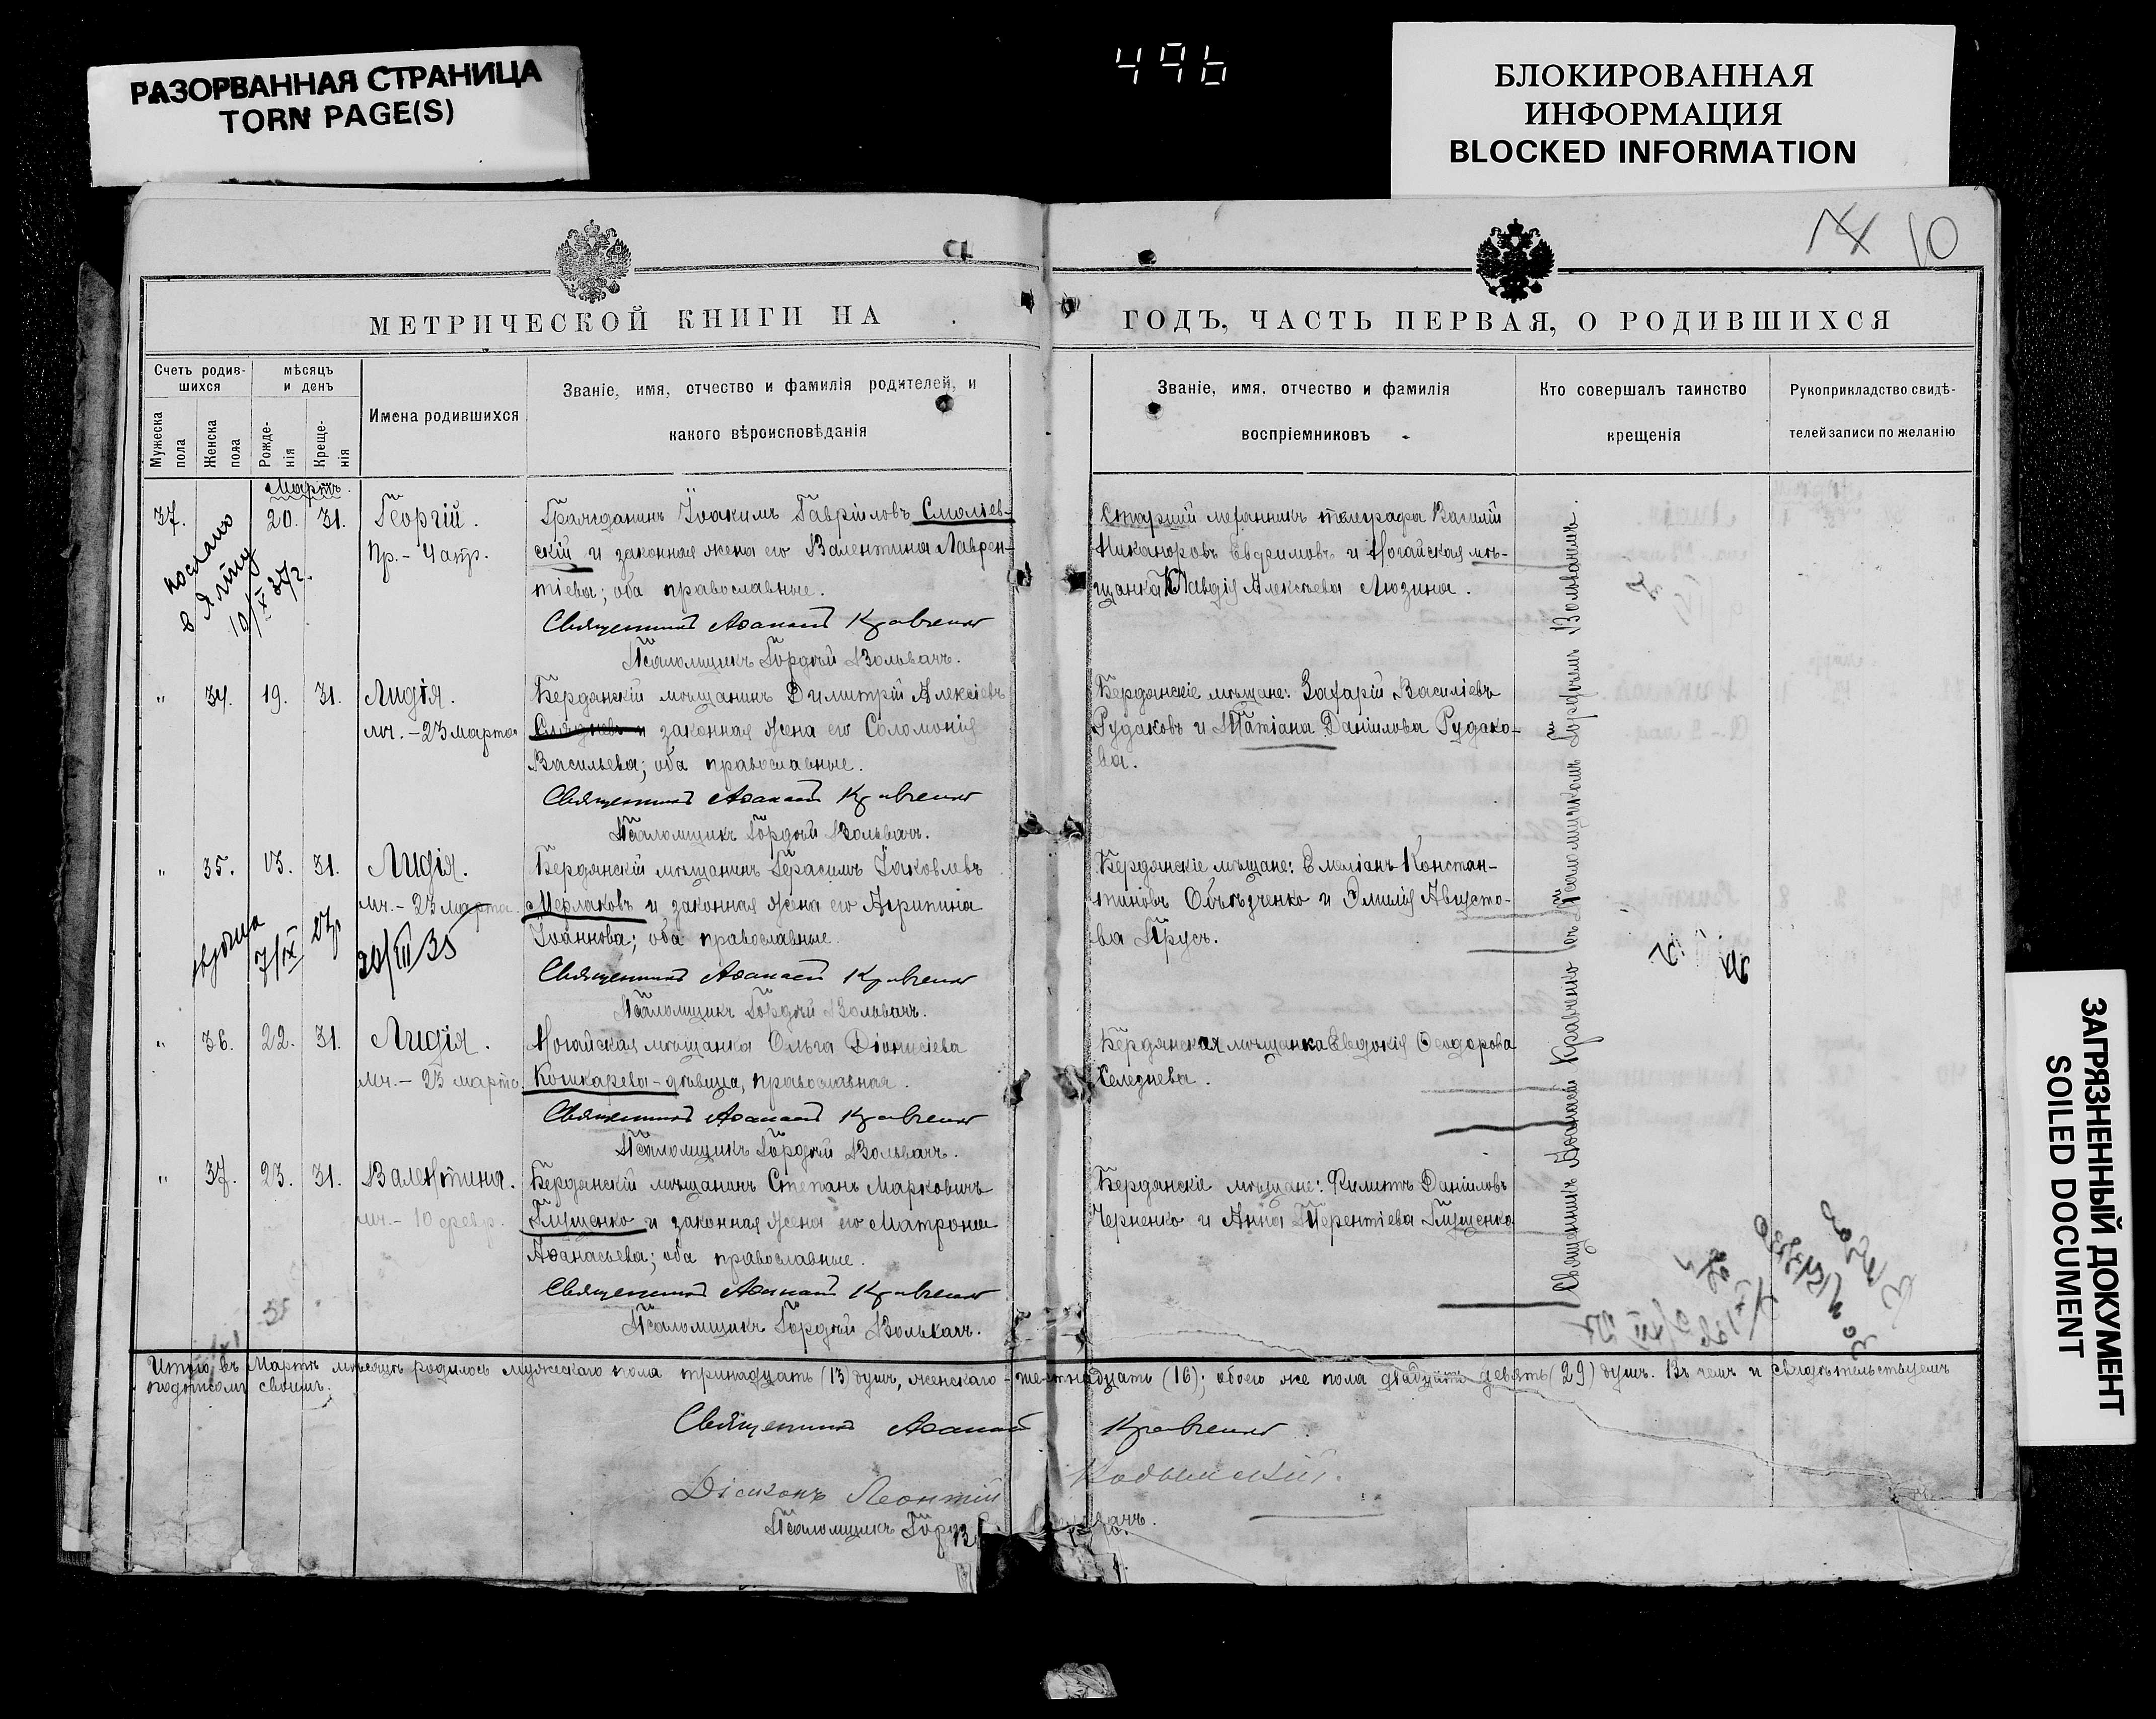 РАЗОРВАННАЯ СТРАНИЦА
TORN PAGE(S)
496
БЛОКИРОВАННАЯ
ИНФОРМАЦИЯ
BLOCKED INFORMATION
10
МЕТРИЧЕСКОЙ КНИГИ НА
Счетъ родив-
шихся
мѣсяцъ
и день
Мужеска
пола
Женска
пола
Рожде-
нія
Креще-
нія
Имена родившихся
Званіе, имя, отчество и фамилія родителей, и
какого вѣроисповѣданія
Мартъ.
37. 20. 31. Георгій. Гражданинъ Іоакимъ Гавріиловъ Смольев-
Пр. - 4 апр. скій и законная жена его Валентина Лаврен-
тіева; оба православные.
послано
в Ялту
10/X 37г.
Священникъ Аѳанасій Кравченко
Псаломщикъ Гордѣй Вольвачъ.
" 34. 19. 31. Лидія. Бердянскій мѣщанинъ Димитрій Алексіевъ
мч. - 23 марта и законная жена его Соломонія
Васильева; оба православные.
Священникъ Аѳанасій Кравченко
Псаломщикъ Гордѣй Вольвачъ.
" 35. 13. 31. Лидія. Бердянскій мѣщанинъ Герасимъ Іаковлевъ
мч. - 23 марта. Мерлаковъ и законная жена его Агрипина
Іоаннова; оба православные.
7/IX
20/III 35
Священникъ Аѳанасій Кравченко
Псаломщикъ Гордѣй Вольвачъ.
" 36. 22. 31. Лидія. Ногайская мѣщанка Ольга Діонисіева
мч. - 23 марта. Кошкарева - дѣвица, православная.
Священникъ Аѳанасій Кравченко
Псаломщикъ Гордѣй Вольвачъ.
" 37. 23. 31. Валентина. Бердянскій мѣщанинъ Стефанъ Марковичъ
мч. - 10 февр. Глущенко и законная жена его Матрона
Аѳанасьева; оба православные.
Священникъ Аѳанасій Кравченко
Псаломщикъ Гордѣй Вольвачъ.
ГОДЪ, ЧАСТЬ ПЕРВАЯ, О РОДИВШИХСЯ
Званіе, имя, отчество и фамилія
воспріемниковъ
Кто совершалъ таинство
крещенія
Рукоприкладство свидѣ-
телей записи по желанію
Старшій механикъ телеграфа Василій
Никаноровъ Евфимовъ и Ногайская мѣ-
щанка Клавдія Алексѣева Люзина.
Бердянскіе мѣщане: Захарій Василіевъ
Рудаковъ и Татіана Даніилова Рудако-
ва.
Бердянскіе мѣщане: Емеліанъ Констан-
тиновъ Объѣдченко и Эмилія Августо-
ва Прусъ.
Бердянская мѣщанка Евдокія Ѳеодорова
Селеднева.
Бердянскіе мѣщане: Филиппъ Даніиловъ
Черненко и Анна Терентіева Глущенко
Священникъ Аѳанасій Кравченко съ Псаломщикомъ Гордѣемъ Вольвачемъ.
Итого въ Мартѣ мѣсяцѣ родилось мужескаго пола тринадцать (13) душъ, женскаго - шестнадцать (16); обоего же пола двадцать девять (29) душъ. Въ чемъ и свидѣтельствуемъ
подписомъ своимъ:
Священникъ Аѳанасій Кравченко
Діаконъ Леонтій
Псаломщикъ
ЗАГРЯЗНЕННЫЙ ДОКУМЕНТ
SOILED DOCUMENT